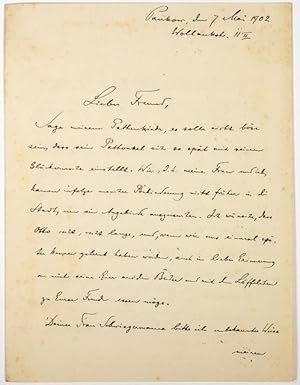 Pankow, den 7 Mai 1902
Wollankstr. 11 II
Lieber Freund,
Sage meinem Pathenkinde, es solle nicht böse
sein, dass sein Pathonkel sich so spät mit seinem
einstellt. Wir, d.h. meine Frau und ich,
kamen infolge meiner nicht früher in die
Stadt, um ein Angebinde auszusuchen. Ich wünsche, dass
Otto recht, recht lange, und, wenn wir uns einmal
haben werden, auch in lieber Erinnerung
an mich seine Eier aus dem Becher und mit dem Löffelchen
zu Eurer Freude essen möge.
Deiner Frau Schwiegermama bitte ich unbekannter Weise
meinen